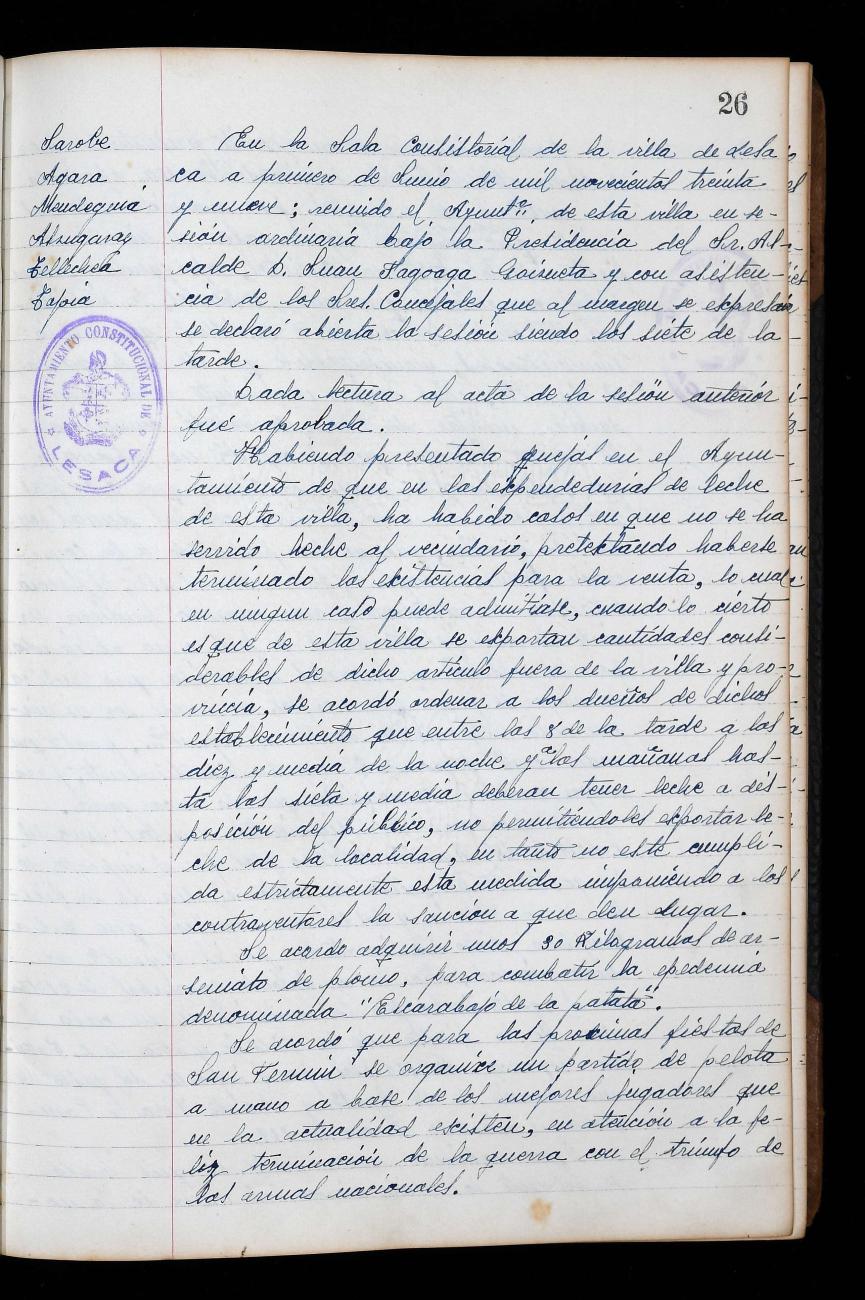 26
Sarobe
Agara
Mendeguia
Alzugaray
Tellechea
Tapia
AYUNTAMIENTO CONSTITUCIONAL DE
LESACA
En la Sala Consistorial de la villa de Lesa-
ca a primero de Junio de mil novecientos treinta
y nueve; reunido el Ayuntº. de esta villa en se-
sión ordinaria bajo la Presidencia del Sr. Al-
calde D. Juan Fagoaga Goisueta y con asisten-
cia de los Sres. Concejales que al margen se expresan
se declaró abierta la sesión siendo las siete de la
tarde.
Dada lectura al acta de la sesión anterior
fué aprobada.
Habiendo presentado quejas en el Ayun-
tamiento de que en las expendedurias de leche
de esta villa, ha habido casos en que no se ha
servido leche al vecindario, pretextando haberse
terminado las existencias para la venta, lo cual
en ningun caso puede admitirse, cuando lo cierto
es que de esta villa se exportan cantidades consi-
derables de dicho artículo fuera de la villa y pro-
vincia, se acordó ordenar a los dueños de dichos
establecimiento que entre las 8 de la tarde a las
diez y media de la noche y a las mañanas has-
ta las sieta y media deberan tener leche a dis-
posición del público, no permitiéndoles exportar le-
che de la localidad, en tanto no este cumpli-
da estrictamente esta medida imponiendo a los
contraventores la sancion a que den lugar.
Se acordo adquirir unos 30 Kilogramos de ar-
seniato de plomo, para combatir la epedemia
denominada "Escarabajo de la patata".
Se acordó que para las proximas fiestas de
San Fermin se organize un partido de pelota
a mano a base de los mejores jugadores que
en la actualidad existen, en atención a la fe-
liz terminación de la guerra con el triunfo de
las armas nacionales.